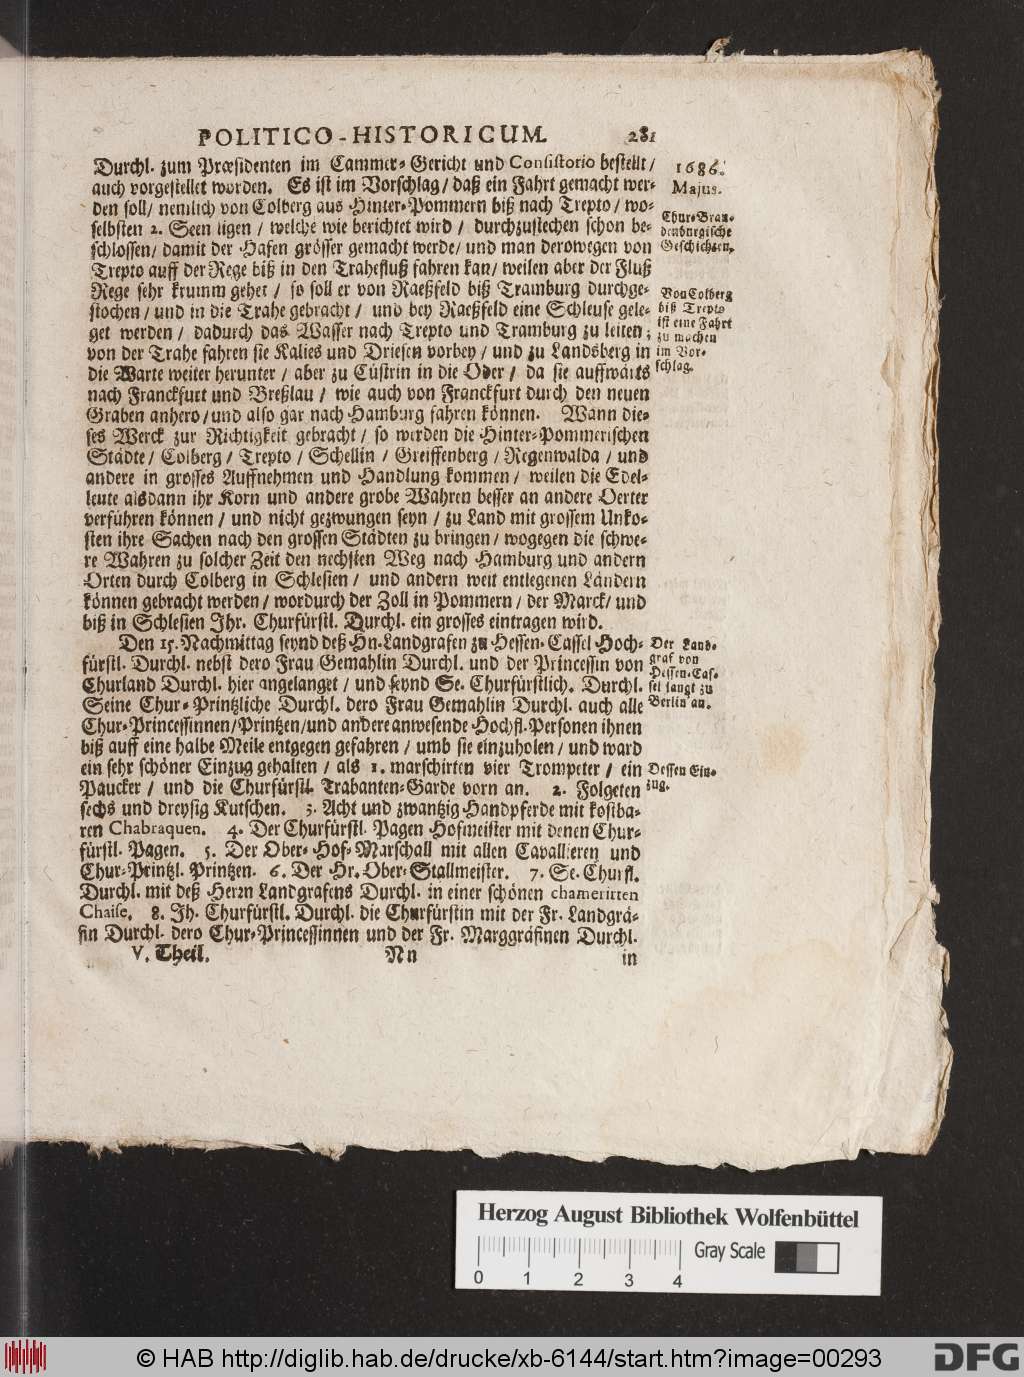 POLITICO-HISTORICUM. 281
Durchl. zum Præsidenten im Cammer-Gericht und Consistorio bestellt /
auch vorgestellet worden. Es ist im Vorschlag / daß ein Fahrt gemacht wer-
den soll / nemlich von Colberg aus Hinter-Pommern biß nach Trepto / wo-
selbsten 2. Seen ligen / welche wie berichtet wird / durchzustechen schon be-
schlossen / damit der Hafen grösser gemacht werde / und man derowegen von
Trepto auff der Rege biß in den Trahefluß fahren kan / weilen aber der Fluß
Rege sehr krumm gehet / so soll er von Raeßfeld biß Tramburg durchge-
stochen / und in die Trahe gebracht / und bey Raeßfeld eine Schleuse gele-
get werden / dadurch das Wasser nach Trepto und Tramburg zu leiten;
von der Trahe fahren sie Kalies und Driesen vorbey / und zu Landsberg in
die Warte weiter herunter / aber zu Cüstrin in die Oder / da sie auffwärts
nach Franckfurt und Breßlau / wie auch von Franckfurt durch den neuen
Graben anhero / und also gar nach Hamburg fahren können. Wann die-
ses Werck zur Richtigkeit gebracht / so werden die Hinter-Pommerischen
Städte / Colberg / Trepto / Schellin / Greiffenberg / Regenwalda / und
andere in grosses Auffnehmen und Handlung kommen / weilen die Edel-
leute alsdann ihr Korn und andere grobe Wahren besser an andere Oerter
verführen können / und nicht gezwungen seyn / zu Land mit grossem Unko-
sten ihre Sachen nach den grossen Städten zu bringen / wogegen die schwe-
re Wahren zu solcher Zeit den nechsten Weg nach Hamburg und andern
Orten durch Colberg in Schlesien / und andern weit entlegenen Ländern
können gebracht werden / wordurch der Zoll in Pommern / der Marck / und
biß in Schlesien Ihr. Churfürstl. Durchl. ein grosses eintragen wird.
Den 15. Nachmittag seynd deß Hn. Landgrafen zu Hessen-Cassel Hoch-
fürstl. Durchl. nebst dero Frau Gemahlin Durchl. und der Princessin von
Churland Durchl. hier angelanget / und seynd Se. Churfürstlich. Durchl.
Seine Chur-Printzliche Durchl. dero Frau Gemahlin Durchl. auch alle
Chur-Princessinnen / Printzen / und andere anwesende Hochfl. Personen ihnen
biß auff eine halbe Meile entgegen gefahren / umb sie einzuholen / und ward
ein sehr schöner Einzug gehalten / als 1. marschirten vier Trompeter / ein
Paucker / und die Churfürstl. Trabanten-Garde vorn an. 2. Folgeten
sechs und dreysig Kutschen. 3. Acht und zwantzig Handpferde mit kostba-
ren Chabraquen. 4. Der Churfürstl. Pagen Hofmeister mit denen Chur-
fürstl. Pagen. 5. Der Ober-Hof-Marschall mit allen Cavallieren und
Chur-Printzl. Printzen. 6. Der Hr. Ober-Stallmeister. 7. Se. Churfl.
Durchl. mit deß Herzn Landgrafens Durchl. in einer schönen chamerirten
Chaise. 8. Ih. Churfürstl. Durchl. die Churfürstin mit der Fr. Landgrä-
fin Durchl. dero Chur-Princessinnen und der Fr. Marggräfinen Durchl.
V. Theil. Nn in
1686.
Majus.
Chur-Bran-
denburgische
Geschichten.
Von Colberg
biß Trepto
ist eine Fahrt
zu machen
im Vor-
schlag.
Der Land-
graf von
Hessen-Cas-
sel langt zu
Berlin an.
Dessen Ein-
zug.
Herzog August Bibliothek Wolfenbüttel
Gray Scale
0 1 2 3 4
© HAB http://diglib.hab.de/drucke/xb-6144/start.htm?image=00293
DFG